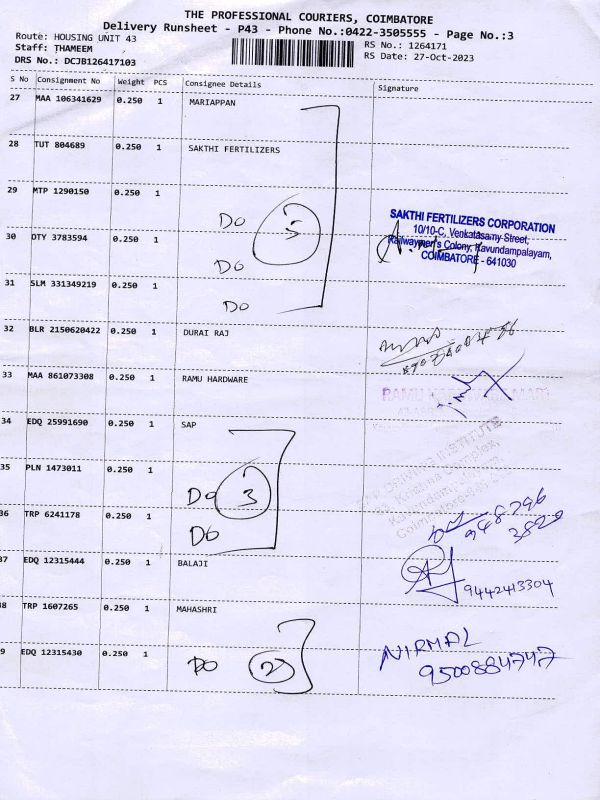 THE PROFESSIONAL COURIERS, COIMBATORE
Delivery Runsheet - P43 - Phone No.:0422-3505555 - Page No.:3
Route: HOUSING UNIT 43
RS No.: 1264171
Staff: THAMEEM
RS Date: 27-Oct-2023
DRS No.: DCJB126417103
S No Consignment No Weight PCS Consignee Details Signature
27 MAA 106341629 0.250 1 MARIAPPAN
28 TUT 804689 0.250 1 SAKTHI FERTILIZERS
29 MTP 1290150 0.250 1
DO 5
SAKTHI FERTILIZERS CORPORATION
10/10-C, Venkatasamy Street,
Railwaymen's Colony, Kavundampalayam,
COIMBATORE - 641030
30 OTY 3783594 0.250 1
DO
31 SLM 331349219 0.250 1
DO
32 BLR 2150620422 0.250 1 DURAI RAJ
33 MAA 861073308 0.250 1 RAMU HARDWARE
RAMU
34 EDQ 25991690 0.250 1 SAP
INSTITUTE
Krishna Complex,
35 PLN 1473011 0.250 1
DO 3
Coimbatore
36 TRP 6241178 0.250 1
DO
948796
3820
37 EDQ 12315444 0.250 1 BALAJI
9442413304
38 TRP 1607265 0.250 1 MAHASHRI
39 EDQ 12315430 0.250 1
DO 2
NIRMAL
9500884747